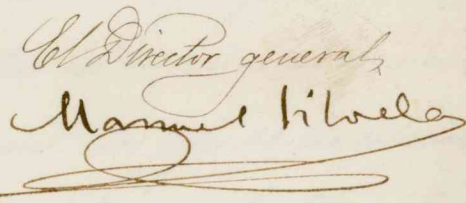 El Director general,
Manuel Silvela